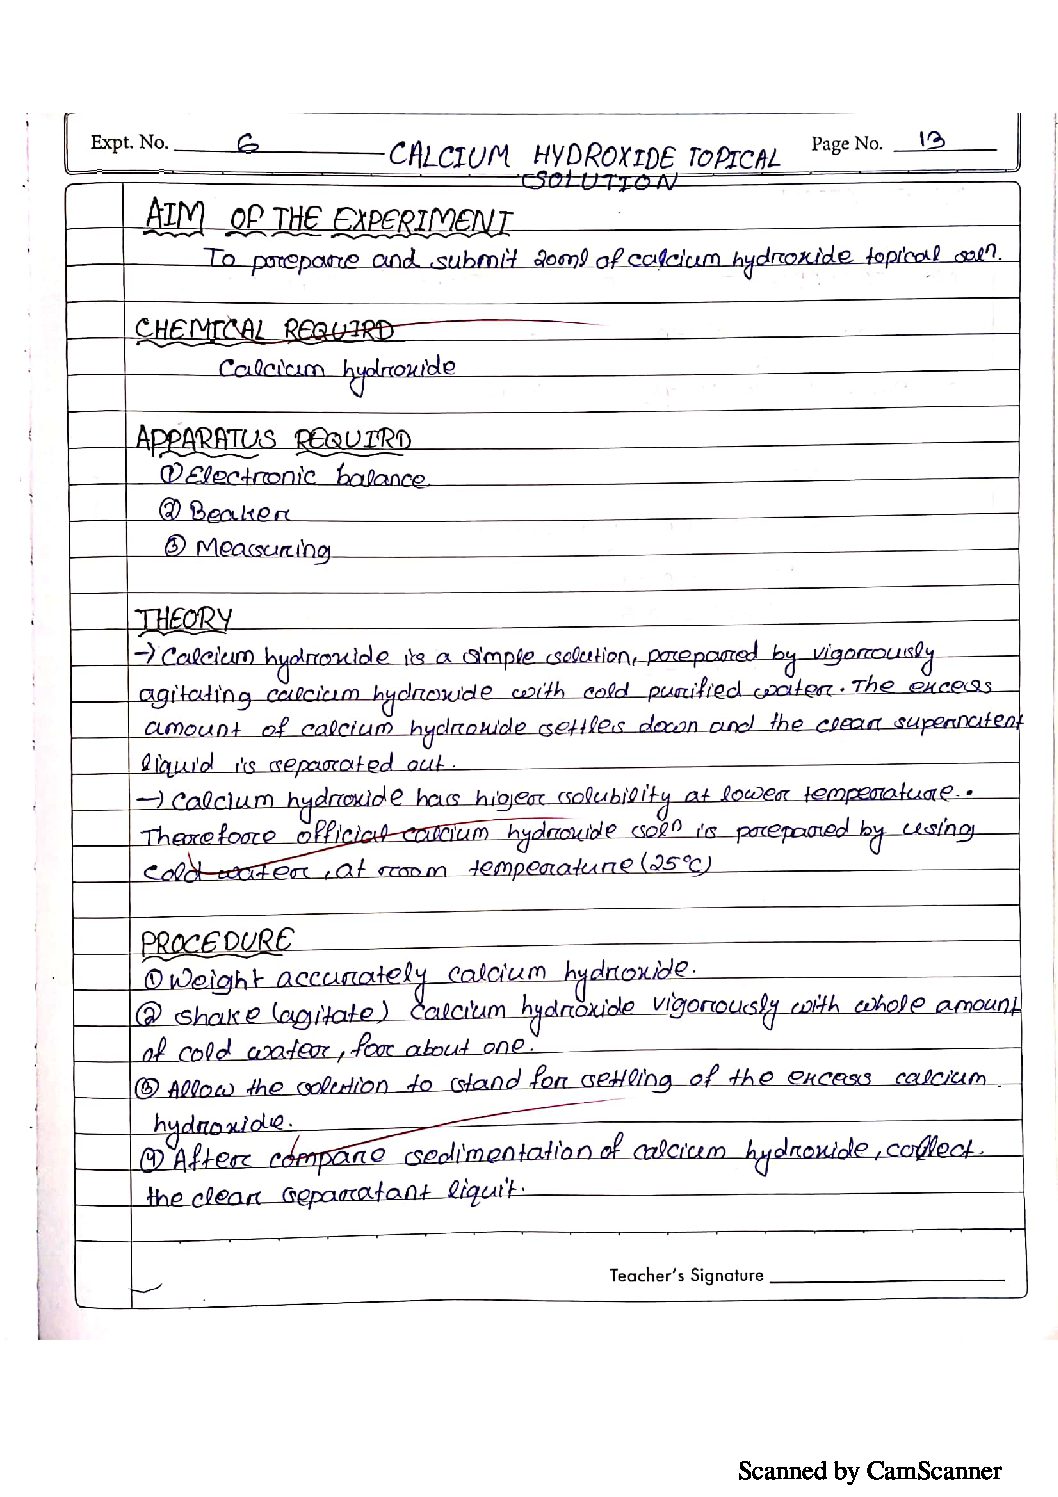 Expt. No. 6
CALCIUM HYDROXIDE TOPICAL
Page No. 13
SOLUTION
AIM OF THE EXPERIMENT
To prepare and submit 200ml of calcium hydroxide topical soln.
CHEMICAL REQUIRD
Calcium hydroxide
APPARATUS REQUIRD
① Electronic balance
② Beaker
③ Measuring
THEORY
→ Calcium hydroxide is a simple solution, prepared by vigorously
agitating calcium hydroxide with cold purified water. The excess
amount of calcium hydroxide settles down and the clear supernatent
liquid is separated out.
→ Calcium hydroxide has higer solubility at lower temperature.
Therefore official calcium hydroxide soln is prepared by using
cold water, at room temperature (25°C)
PROCEDURE
① Weight accurately calcium hydroxide.
② shake (agitate) calcium hydroxide vigorously with whole amount
of cold water, for about one.
③ Allow the solution to stand for settling of the excess calcium
hydroxide.
④ After compare sedimentation of calcium hydroxide, collect
the clear separatant liquit.
Teacher's Signature
Scanned by CamScanner